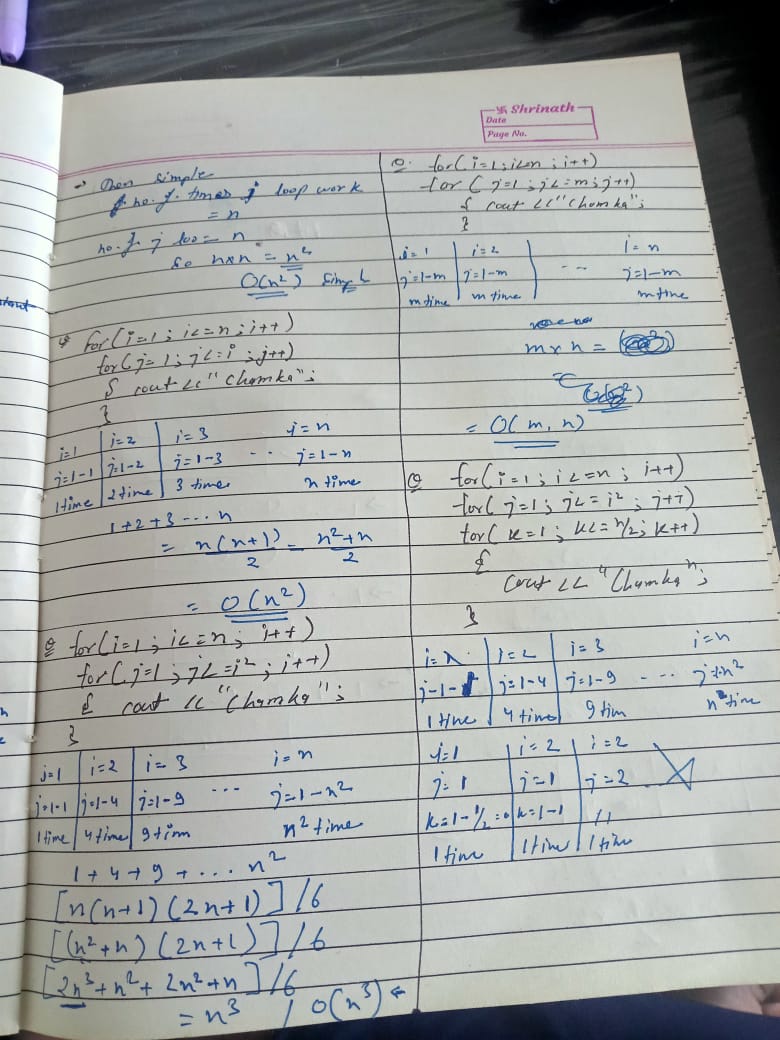 卐 Shrinath
Date
Page No.
→ Then simple
no. of. times j loop work
= n
no. of. j loo = n
So n×n = n²
O(n²) Simpl
Q for(i=1; i<=n; i++)
for(j=1; j<=i; j++)
{ cout << "Chamka";
}
i=1 | i=2 | i=3 i=n
j=1-1 | j=1-2 | j=1-3 .. j=1-n
1time | 2time | 3 times n time
1+2+3 ... n
= n(n+1)/2 = n²+n/2
= O(n²)
Q for(i=1; i<=n; i++)
for(j=1; j<=i²; j++)
{ cout << "Chamka";
}
i=1 | i=2 | i=3 i=n
j=1-1 | j=1-4 | j=1-9 ... j=1-n²
1time | 4time | 9tim n² time
1+4+9+... n²
[n(n+1)(2n+1)]/6
[(n²+n)(2n+1)]/6
[2n³+n²+2n²+n]/6
= n³ / O(n³) ←
Q. for(i=1; i<=n; i++)
for(j=1; j<=m; j++)
{ cout << "Chamka";
}
i=1 | i=2 | i=n
j=1-m | j=1-m | -- j=1-m
m time | m time | m time
m×n =
= O(m, n)
Q for(i=1; i<=n; i++)
for(j=1; j<=i²; j++)
for(k=1; k<=n/2; k++)
{
cout << "Chamka";
}
i=1 | i=2 | i=3 i=n
j-1-1 | j=1-4 | j=1-9 ... j=n²
1time | 4time | 9tim n² time
i=1 | i=2 | i=2
j=1 | j=1 | j=2
k=1-1/2=0 | k=1-1 | 11
1time | 1time | 1time